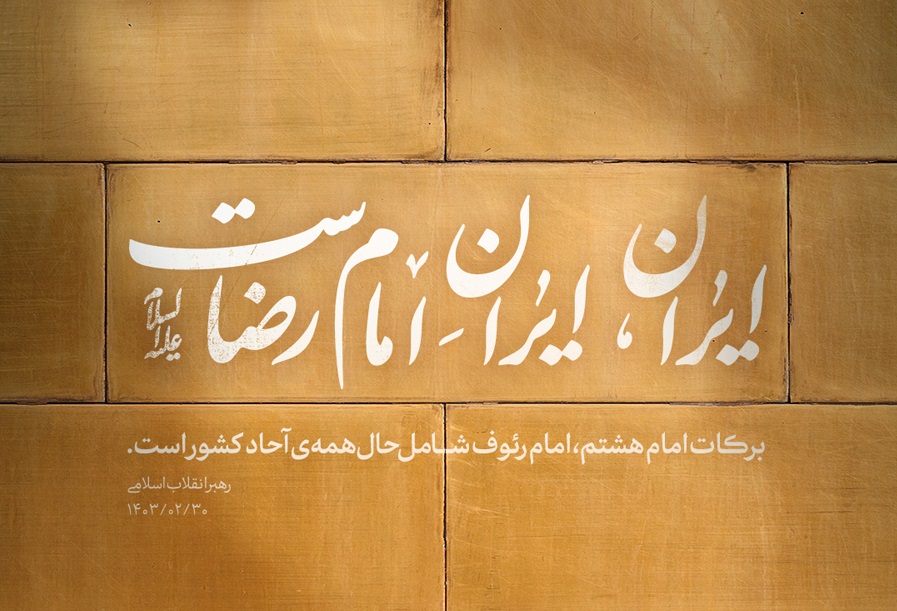 ایران، ایرانِ امام رضاست
علیه السلام
برکات امام هشتم، امام رئوف شامل حال همه‌ی آحاد کشور است.
رهبر انقلاب اسلامی
۱۴۰۳/۰۲/۳۰